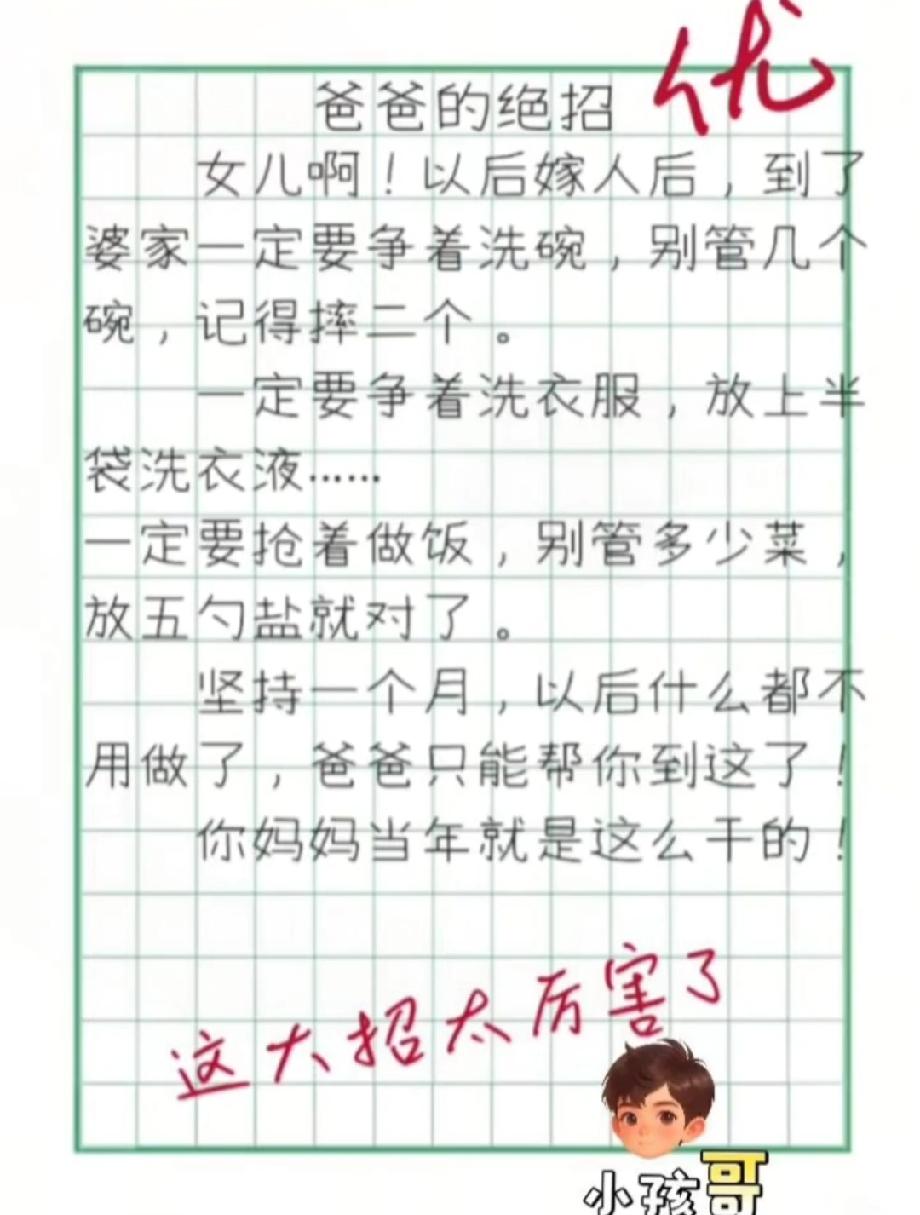 优
爸爸的绝招
女儿啊！以后嫁人后，到了
婆家一定要争着洗碗，别管几个
碗，记得摔二个。
一定要争着洗衣服，放上半
袋洗衣液……
一定要抢着做饭，别管多少菜，
放五勺盐就对了。
坚持一个月，以后什么都不
用做了，爸爸只能帮你到这了！
你妈妈当年就是这么干的！
这大招太厉害了
小孩哥